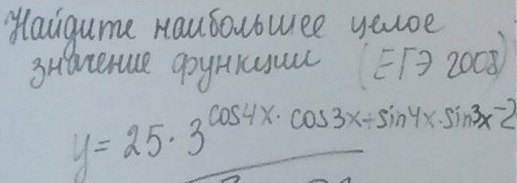 Найдите наибольшее целое
значение функции (ЕГЭ 2008)
y = 25 · 3^cos4x · cos3x + sin4x · sin3x - 2